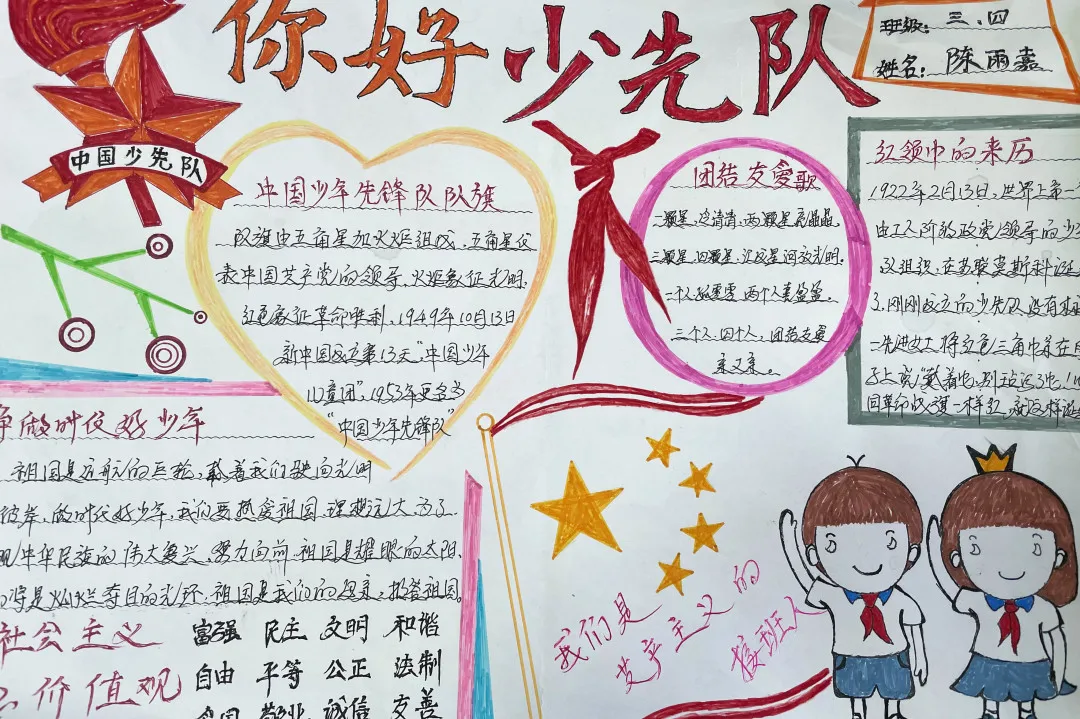 你好少先队
班级:三.四
姓名:陈雨嘉
中国少先队
中国少年先锋队队旗
队旗由五角星加火炬组成,五角星代
表中国共产党的领导,火炬象征光明,
红色象征革命胜利,1949年10月13日
新中国成立第13天"中国少年
儿童团",1953年更名为
"中国少年先锋队"
团结友爱歌
一颗星,冷清清,两颗星亮晶晶,
三颗星,四颗星,汇成星河放光明。
一个人孤零零,两个人喜盈盈。
三个人、四个人,团结友爱
亲又亲。
红领巾的来历
1922年2月13日,世界上第一
由工人阶级政党领导的少
汉组织,在苏联莫斯科诞
了,刚刚成立的少先队没有标
一先进女工将红色三角巾系在
子上说"戴着它,别玷污了它!
国革命红旗一样红,
争做时代好少年
祖国是远航的巨轮,载着我们驶向光明
彼岸,做时代好少年,我们要热爱祖国 理想远大 为了
现中华民族的伟大复兴、努力向前 祖国是耀眼的太阳,
们将是灿烂夺目的光环,祖国是我们的母亲,报答祖国。
社会主义
价值观
富强 民主 文明 和谐
自由 平等 公正 法制
爱国 敬业 诚信 友善
我们是
共产主义的
接班人